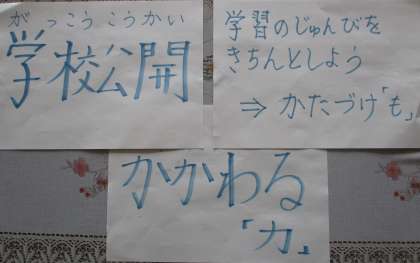 がっこうこうかい
学校公開
学習のじゅんびを
きちんとしよう
⇒ かたづけ「も」
かかわる
「力」